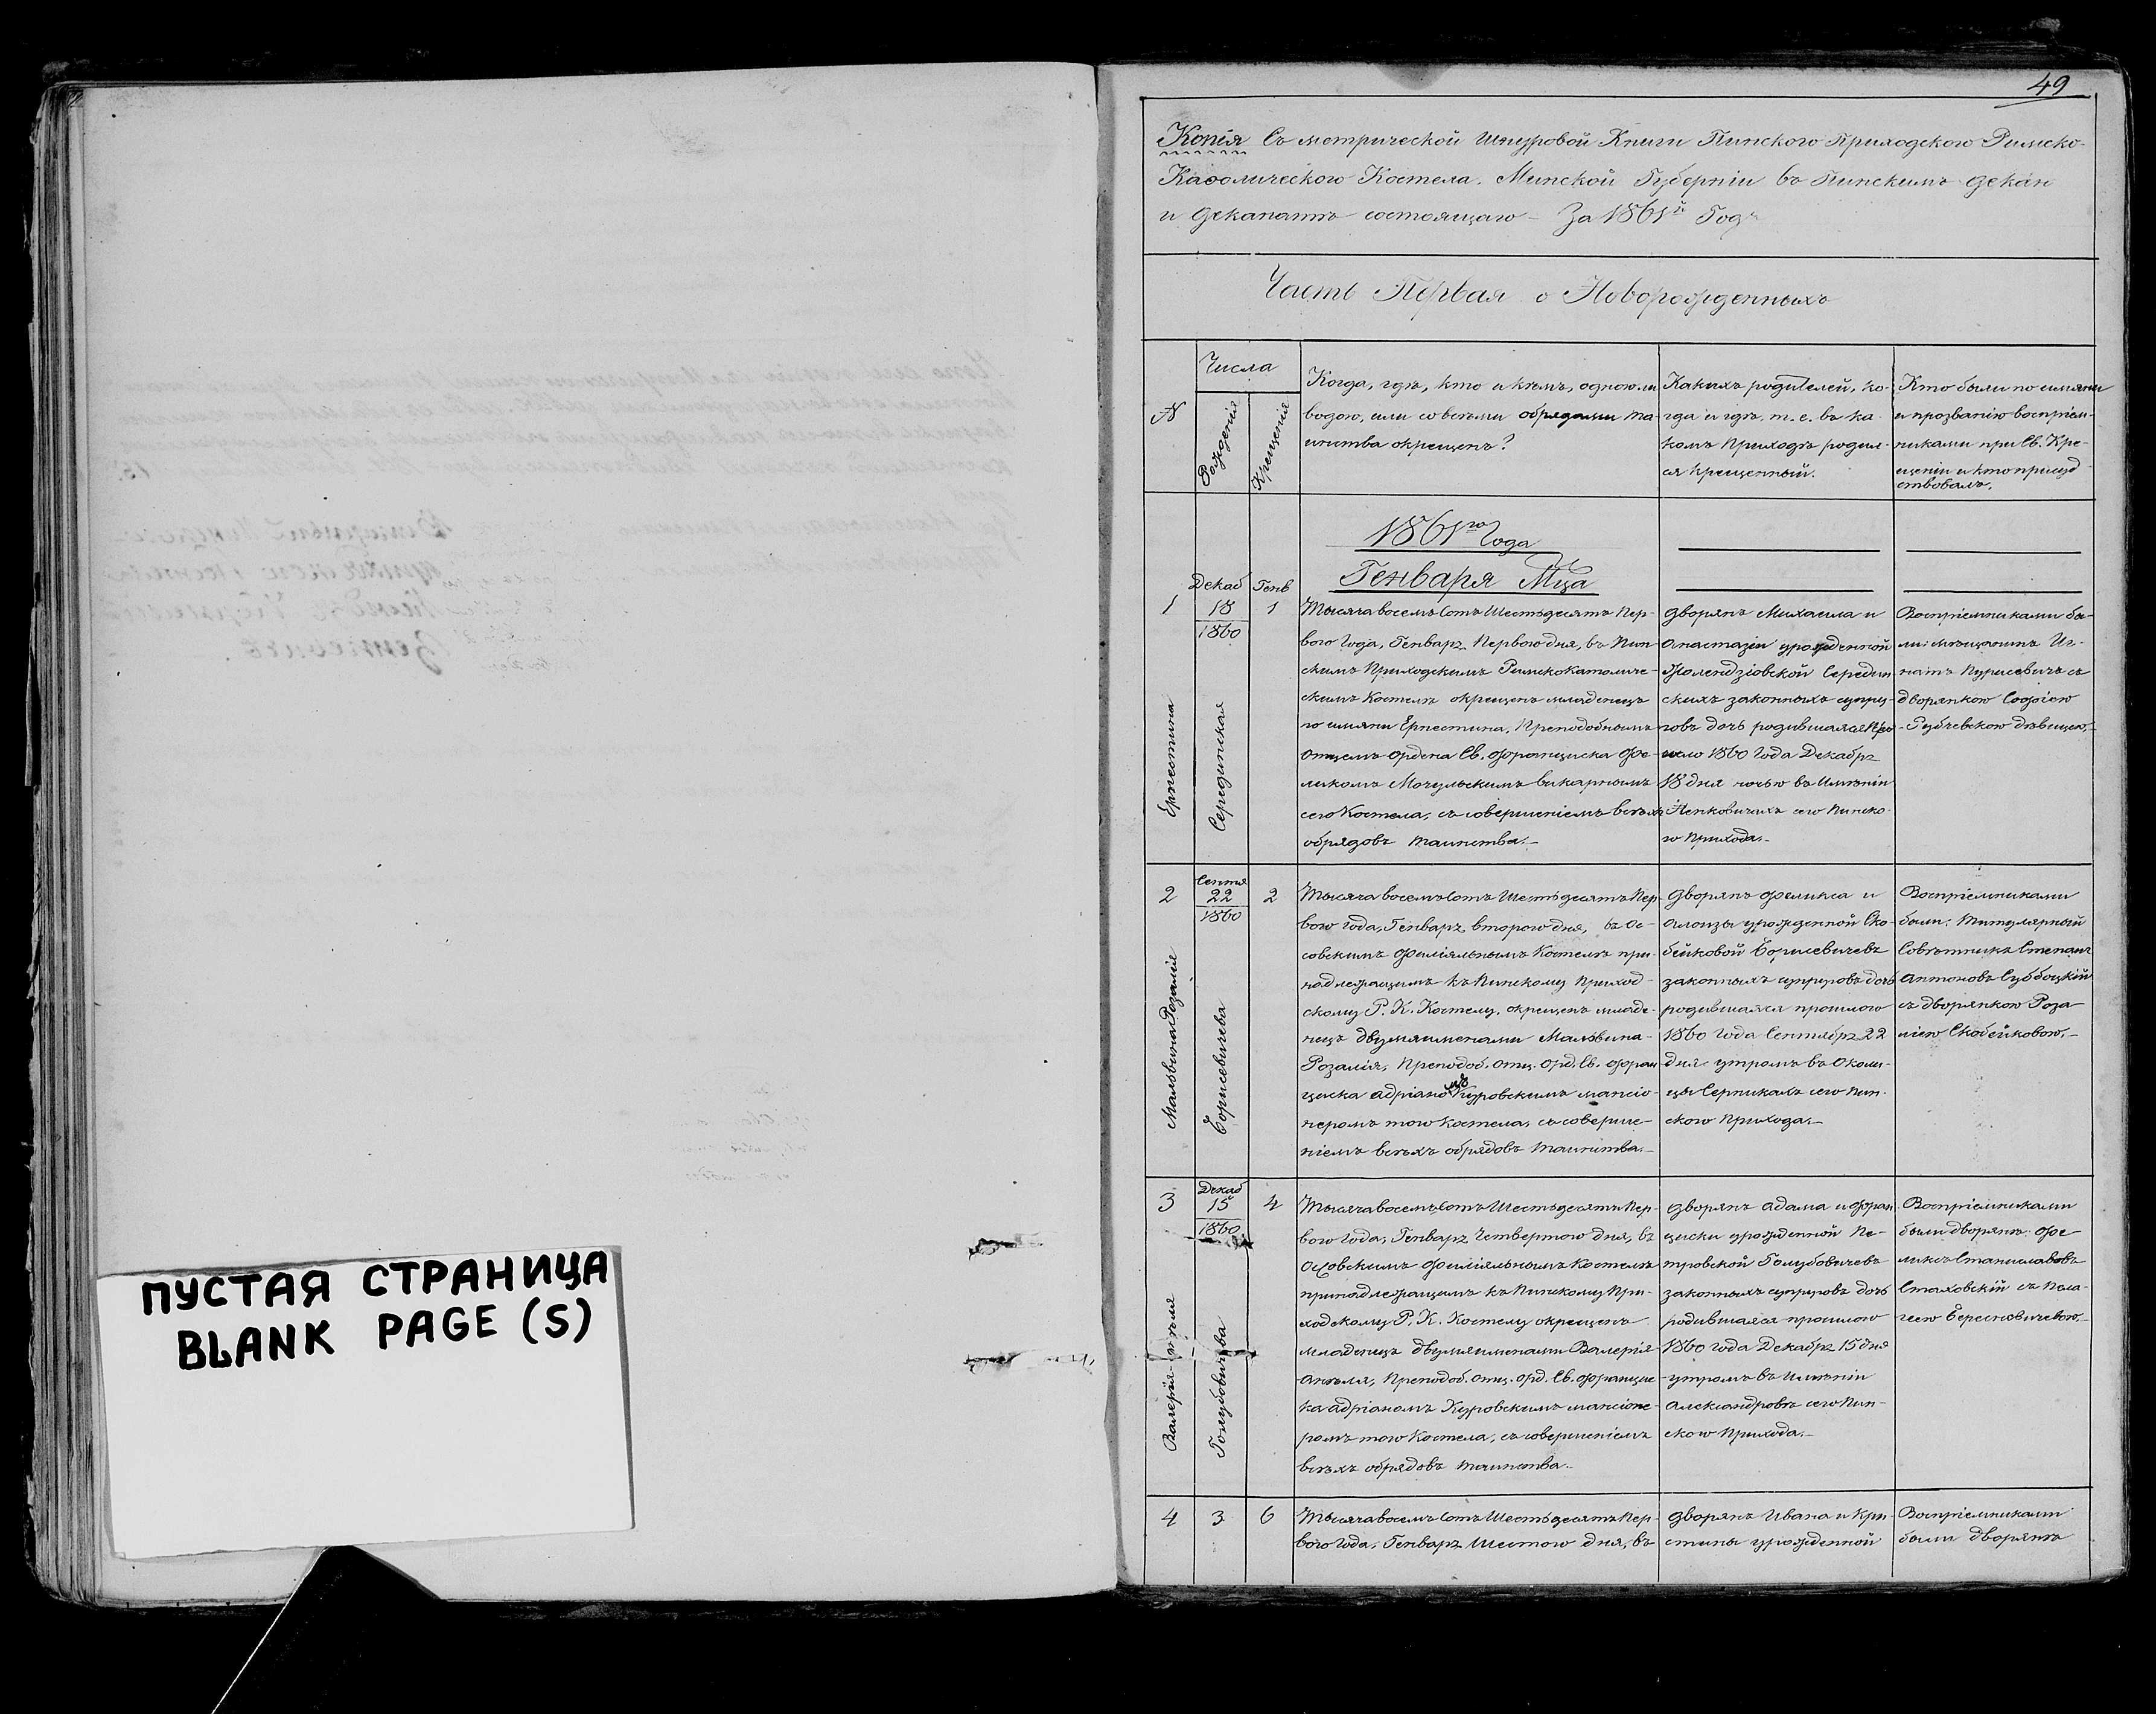 ПУСТАЯ СТРАНИЦА
BLANK PAGE (S)
49
Копія Съ метрической Шнуровой Книги Пинского Приходского Римско-
Каѳолического Костела. Минской Губерніи въ Пинскимъ Декан
и Деканатѣ состоящаго – За 1861й Годъ
Часть Первая о Новорожденныхъ
N
Числа
Рожденія
Крещенія
Когда, гдѣ, кто и кѣмъ, одною ли
водою, или со всѣми обрядами та-
инства окрещенъ?
Какихъ родителей, ко-
гда и гдѣ, т. е. въ ка-
комъ Приходѣ родил-
ся крещенный.
Кто были по имяни
и прозванію воспріем-
никами при Св. Кре-
щеніи и кто присуд-
ствовалъ.
1861го Года
Генваря Мца
1
Декаб
18
1860
Генв
1
Ернестина
Серединская
Тысяча восемъ Сотъ Шестьдесятъ Пер-
вого Года, Генваря Первого дня, въ Пин-
скимъ Приходскимъ Римско Католиче-
скимъ Костелѣ окрещенъ младенецъ
по имяни Ернестина, Преподобнымъ
Отцемъ Ордена Св. Франциска Фе-
ликомъ Мочульскимъ викарнымъ
сего Костела, съ совершеніемъ всѣхъ
обрядовъ таинства.–
Дворянъ Михаила и
Анастазіи урожденной
Холендзіовской Середин-
скихъ законныхъ супру-
говъ дочь родившаяся Про-
шло 1860 Года Декабря
18 дня ночью въ Имѣніи
Ненковичахъ сего Пинско-
го Прихода.–
Воспріемниками бы-
ли: мѣщанинъ Иг-
натъ Пурисевичъ съ
дворянкою Софіею
Рубчевскою дѣвицею.–
2
Сентя
22
1860
2
Мальвина Розалія
Борисевичева
Тысяча восемъ Сотъ Шестьдесятъ Пер-
вого Года, Генваря второго дня, въ Ос-
совскимъ Филіяльнымъ Костелѣ при-
надлежащимъ къ Пинскому Приход-
скому Р. К. Костелу, окрещенъ младе-
нецъ двумя именами Мальвина-
Розалія, Преподоб. отц. Орд. Св. Фран-
циска Адріаномъ Куровскимъ мансіо-
неромъ того Костела, съ соверше-
ніемъ всѣхъ обрядовъ таинства.–
Дворянъ Феликса и
Алоизы урожденной Ско-
бейковой Борисевичевъ
законныхъ супруговъ дочь
родившаяся прошлого
1860 Года Сентября 22
дня утромъ въ Околи-
цы Серникахъ сего Пин-
ского Прихода.–
Воспріемниками
были: Титулярный
Совѣтникъ Степанъ
Антоновъ Субоцкій
съ дворянкою Роза-
ліею Скобейковою.–
3
Декаб
15
1860
4
Голубовичева
Тысяча восемъ Сотъ Шестьдесятъ Пер-
вого Года, Генваря Четвертого дня, въ
Осовскимъ Филіяльнымъ Костелѣ
принадлежащимъ къ Пинскому При-
ходскому Р. К. Костелу окрещенъ
младенецъ двумя именами Валерія-
Анѣля, Преподоб. отц. Орд. Св. Францис-
ка Адріаномъ Куровскимъ мансіоне-
ромъ того Костела, съ совершеніемъ
всѣхъ обрядовъ таинства.–
Дворянъ Адама и Фран-
циски урожденной Пе-
тровской Голубовичевъ
законныхъ супруговъ дочь
родившаяся прошлого
1860 Года Декабря 15 дня
утромъ въ Имѣніи
Александровѣ сего Пин-
ского Прихода.–
Воспріемниками
были дворянъ: Фе-
ликсъ Станиславовъ
Стаховскій съ Пела-
геею Бересновичевою.–
4
3
6
Тысяча восемъ Сотъ Шестьдесятъ Пер-
вого Года, Генваря Шестого дня, въ
Дворянъ Ивана и Кри-
стины урожденной
Воспріемниками
были дворянъ